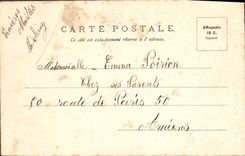 CARTE POSTALE
Ce côté est exclusivement réservé à l'adresse.
Affranchir
10 C.
Mademoiselle Emma Poirion
Chez ses Parents
50 route de Paris 50
Amiens